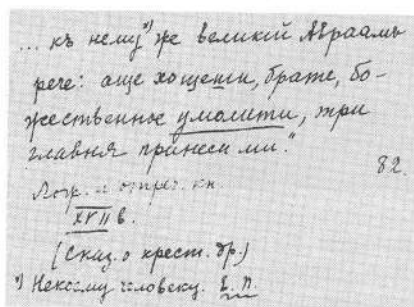 ... къ нему *) же великій Авраамъ
рече: аще хощеши, брате, бо-
жественное умолити, три
главня принеси ми."
82.
отреч. кн.
XVII в.
(Сказ. о крест. др.)
*) Некоему человеку. Е. П.